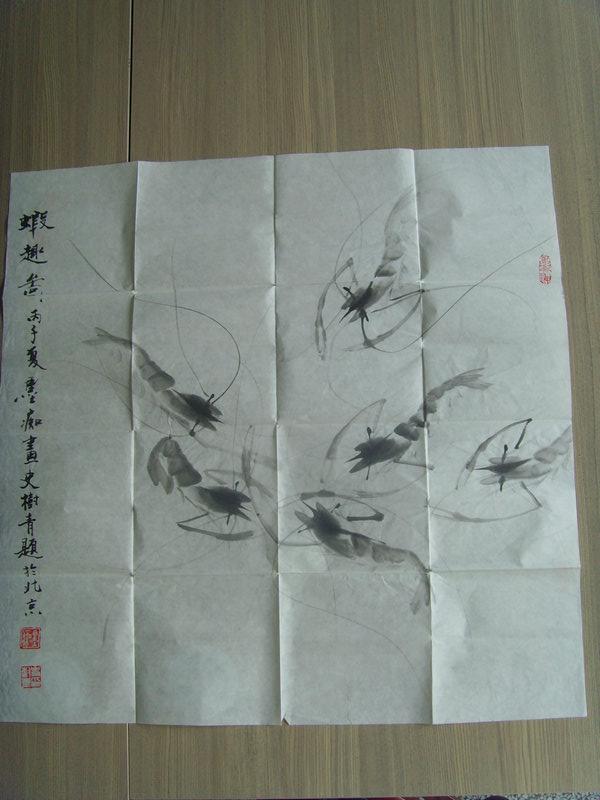 蝦趣丙子夏墨痴畫史樹青題於北京